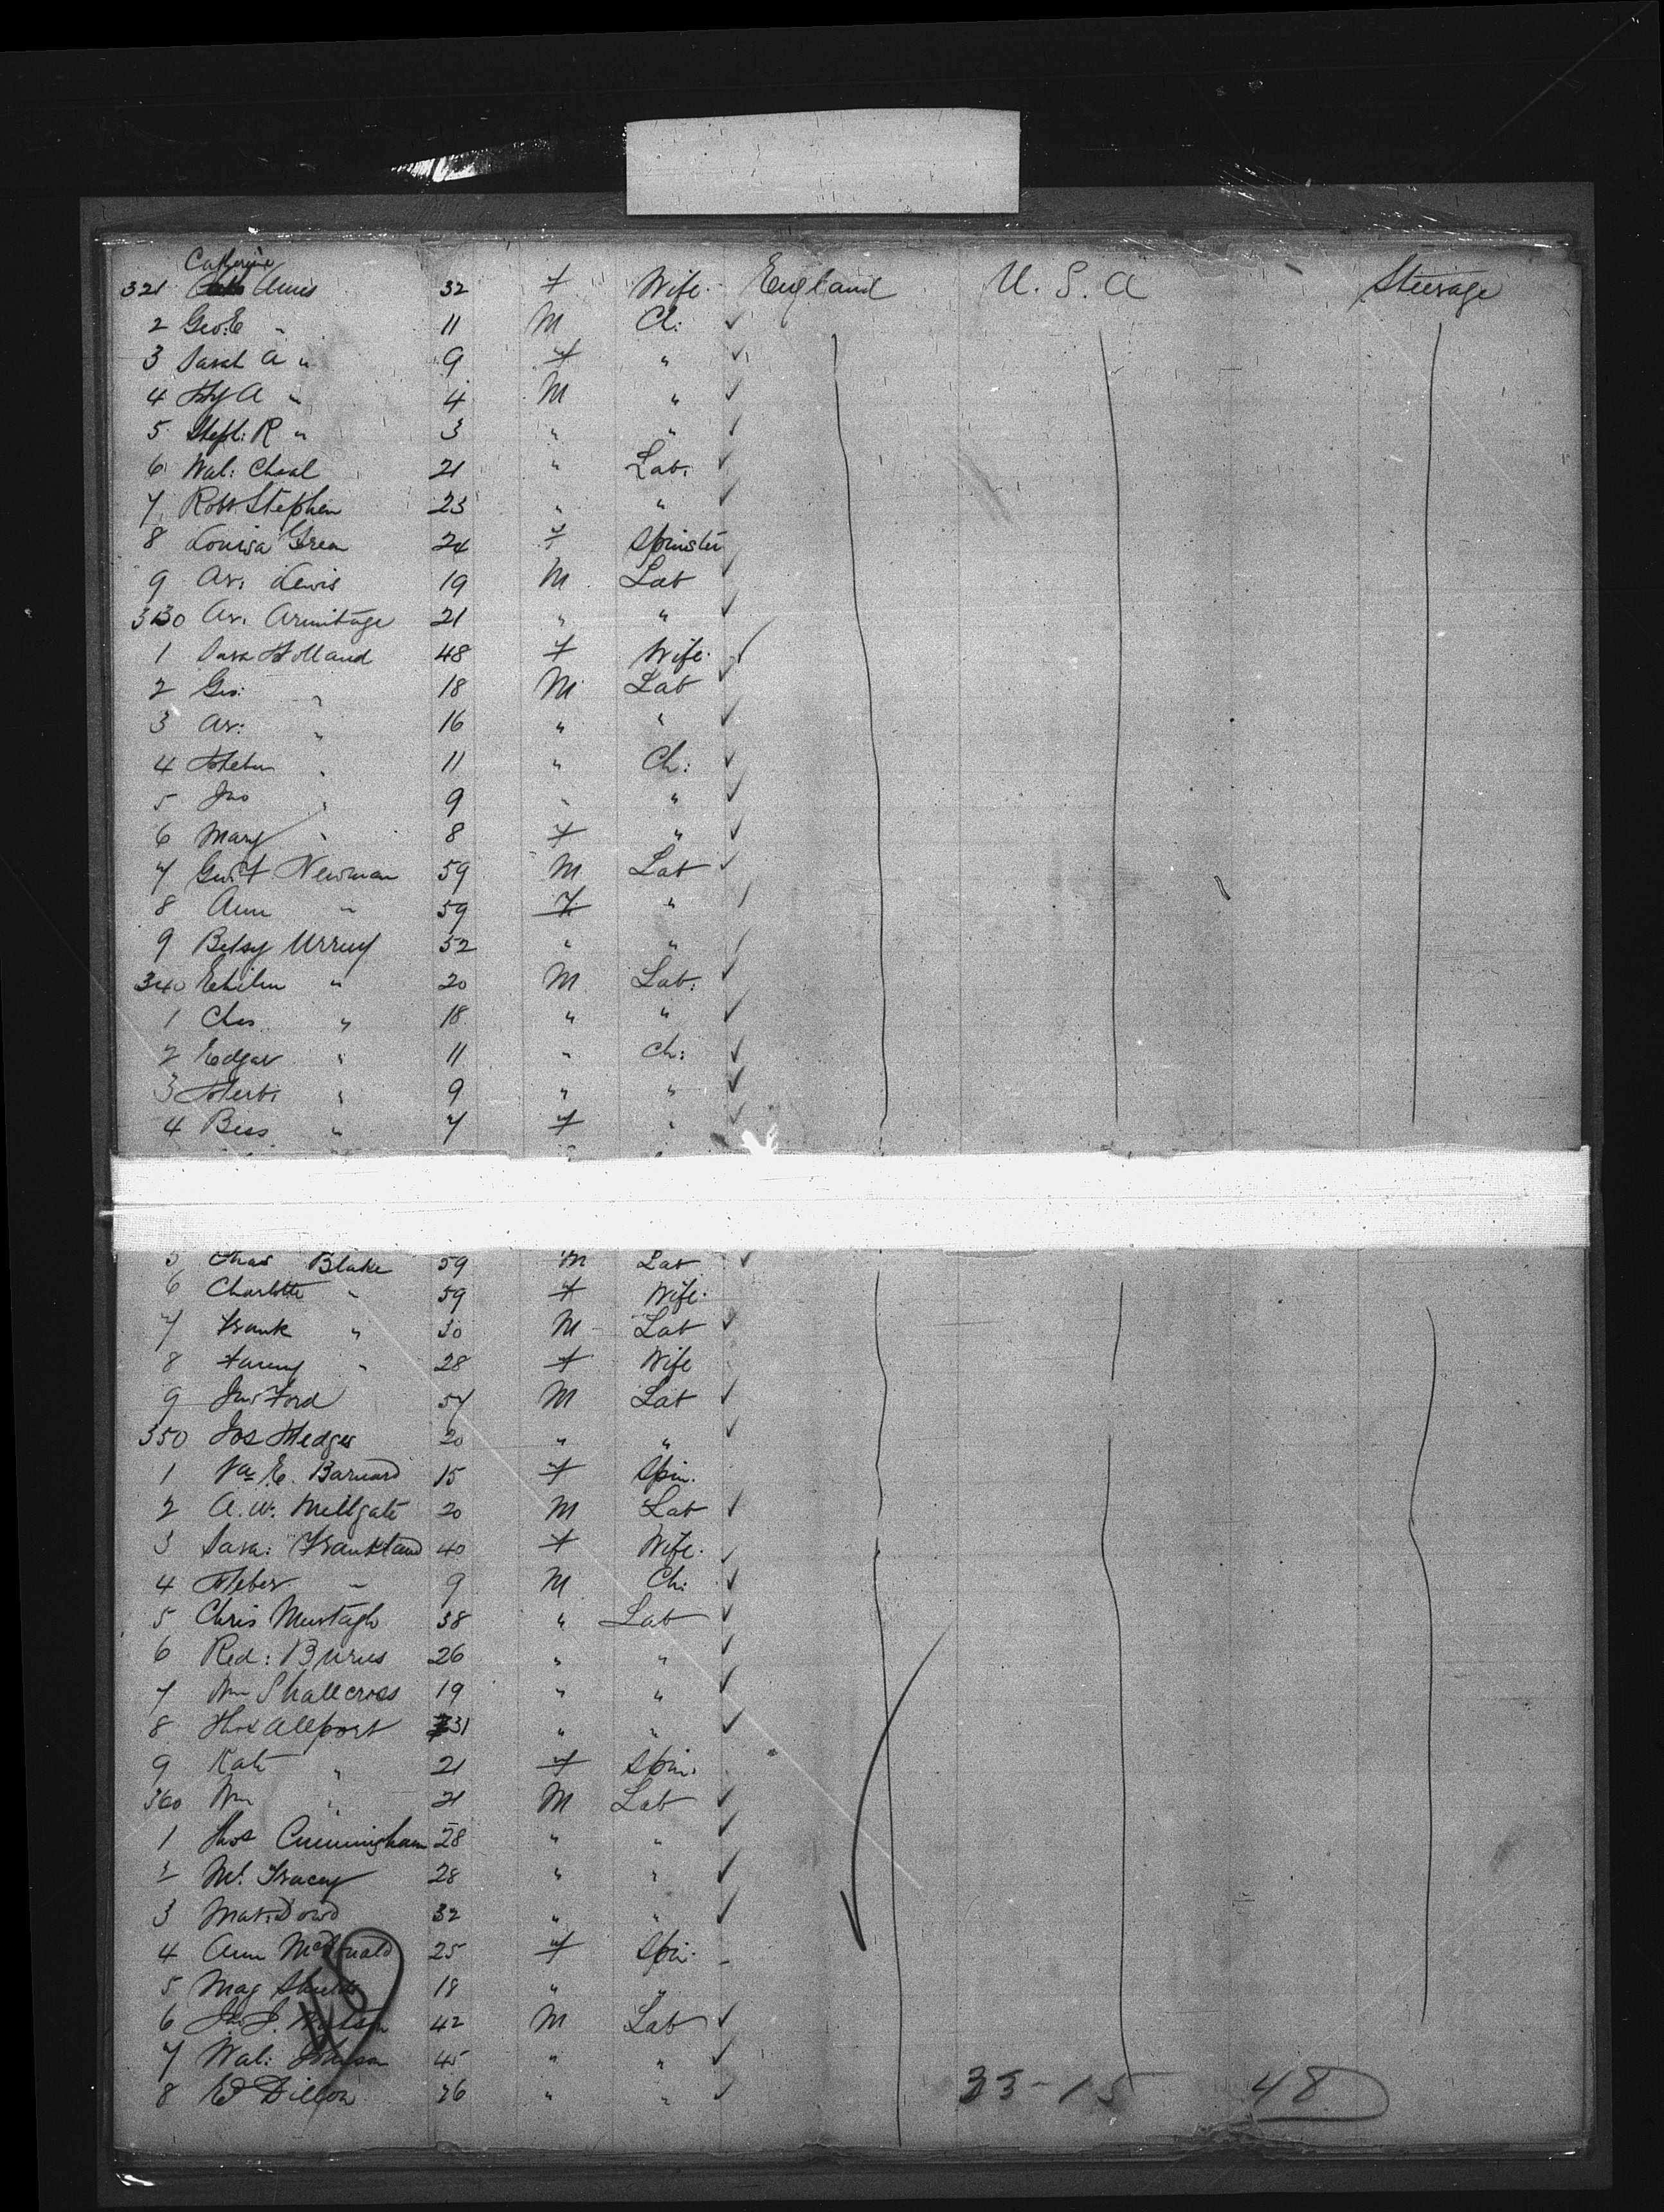 Catherine
321 Amis 32 F Wife. England U. S. A Steerage
2 Geo: E " 11 M Ch:
3 Sarah A " 9 F "
4 Hy A " 4 M "
5 Steph: R " 3 " "
6 Wal: 21 " Lab.
7 Robt Stephen 23 " "
8 Louisa Green 24 F Spinster
9 Ar. Lewis 19 M Lab
330 Ar. Armitage 21 " "
1 Sara Holland 48 F Wife.
2 Geo: " 18 M Lab
3 Ar: " 16 " "
4 Heber " 11 " Ch:
5 Jno " 9 " "
6 Mary " 8 F "
7 Newman 59 M Lab
8 Ann " 59 F "
9 Betsy Urruy 52 " "
340 " 20 M Lab.
1 Chas " 18 " "
2 Edgar " 11 " Ch:
3 Herbt " 9 " "
4 Bess " 7 F "
5 Blake 59 M Lab
6 Charlotte " 59 F Wife.
7 Frank " 30 M Lab
8 Fanny " 28 F Wife
9 Jno Ford 57 M Lab
350 Jos Hedges 20 " "
1 E. Barnard 15 F Spin.
2 A. W. Millgate 20 M Lab
3 Sara: Frankland 40 F Wife.
4 Heber " 9 M Ch:
5 Chris Murtagh 38 " Lab
6 Red: Burns 26 " "
7 Wm Shallcross 19 " "
8 Thos Allport 31 " "
9 Kate " 21 F Spin.
360 Wm " 21 M Lab
1 Thos Cunningham 28 " "
2 Mt. Tracey 28 " "
3 Mat. Dowd 32 " "
4 Ann McDonald 25 F Spin.
5 Mag Shields 18 " "
6 Jno J. 42 M Lab
7 Wal: Johnson 45 " "
8 Dillon 26 " " 33-15 48